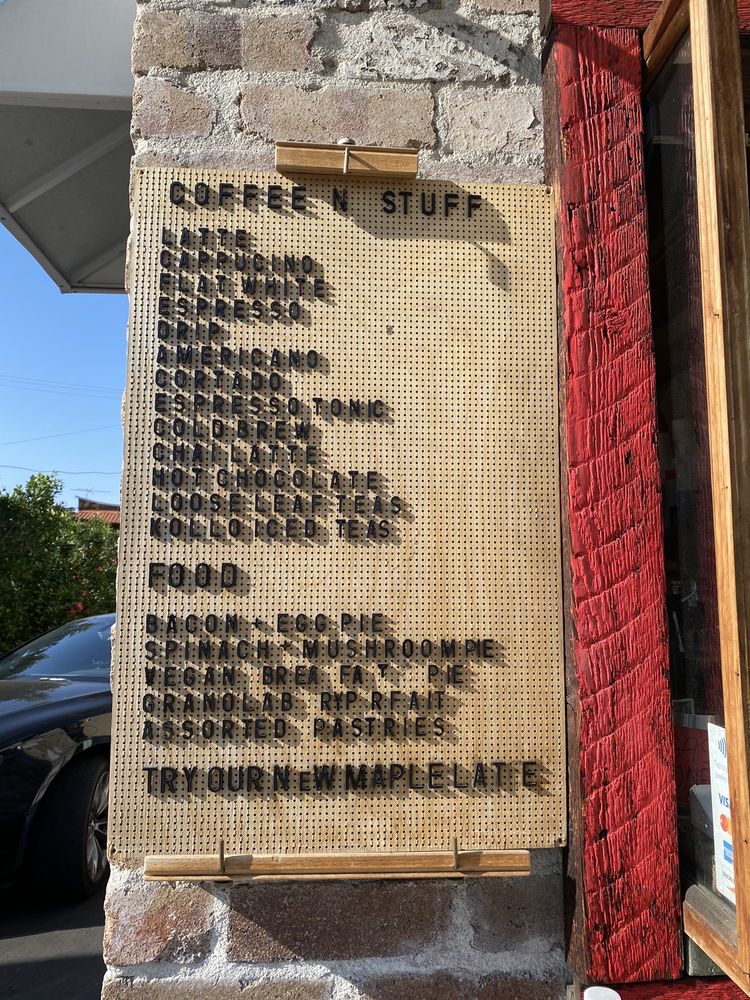 COFFEE N STUFF
LATTE
CAPPUCINO
FLAT WHITE
ESPRESSO
DRIP
AMERICANO
CORTADO
ESPRESSO TONIC
COLD BREW
CHAI LATTE
HOT CHOCOLATE
LOOSE LEAF TEAS
KOLLO ICED TEAS
FOOD
BACON + EGG PIE
SPINACH + MUSHROOM PIE
VEGAN BREA FA T PIE
GRANOLA B RYP RFAIT
ASSORTED PASTRIES
TRY OUR NEW MAPLE LAT E
VISA